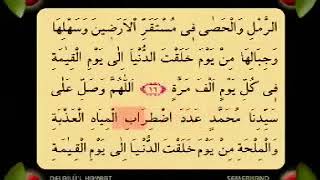 الرَّمْلِ وَالْحَصٰى فِى مُسْتَقَرِّ الْاَرَضِينَ وَسَهْلِهَا
وَجِبَالِهَا مِنْ يَوْمِ خَلَقْتَ الدُّنْيَا اِلٰى يَوْمِ الْقِيٰمَةِ
فِى كُلِّ يَوْمٍ اَلْفَ مَرَّةٍ ﴿١٦﴾ اَللّٰهُمَّ وَصَلِّ عَلٰى
سَيِّدِنَا مُحَمَّدٍ عَدَدَ اضْطِرَابِ الْمِيَاهِ الْعَذْبَةِ
وَالْمِلْحَةِ مِنْ يَوْمِ خَلَقْتَ الدُّنْيَا اِلٰى يَوْمِ الْقِيٰمَةِ
DELAİLÜ'L HAYRAT SEMERKAND